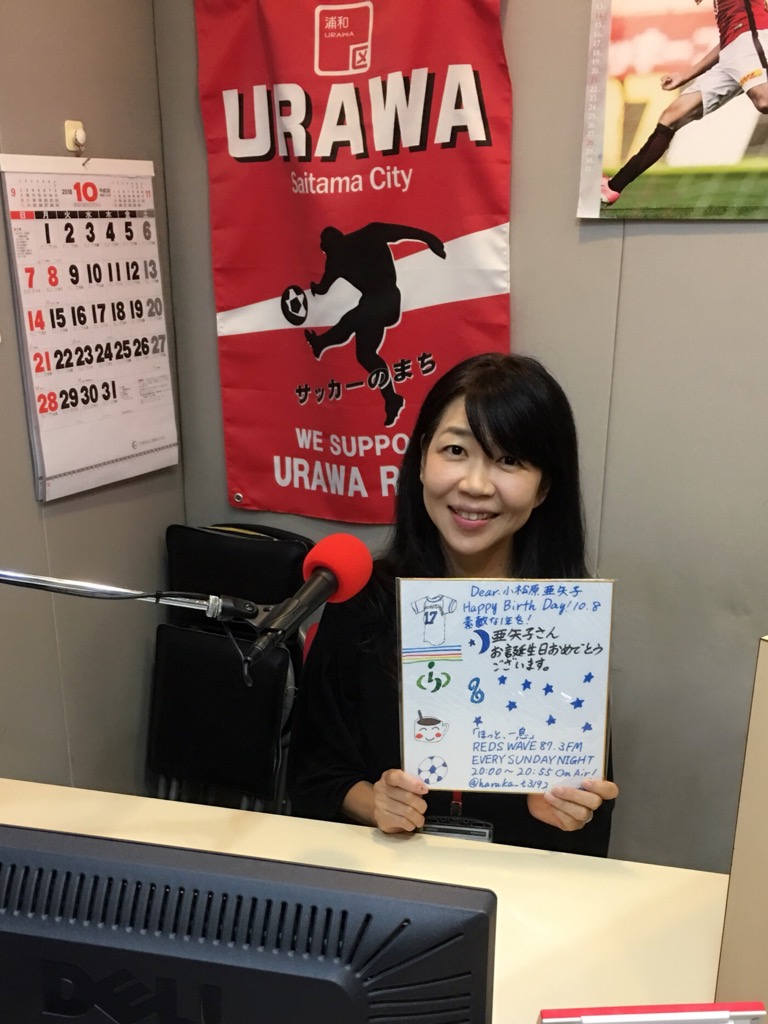 浦和
URAWA
区
URAWA
Saitama City
サッカーのまち
WE SUPPO
URAWA R
9 2018 10 11
日 月 火 水 木 金 土
1 2 3 4 5 6
7 8 9 10 11 12 13
14 15 16 17 18 19 20
21 22 23 24 25 26 27
28 29 30 31
Dear.小松原 亜矢子
Happy Birth Day! 10.8
素敵な1年を!
17
亜矢子さん
お誕生日おめでとう
ございます。
「ほっと、一息」
REDS WAVE 87.3FM
EVERY SUNDAY NIGHT
20:00～20:55 On Air!
@haruka_t3192
DELL